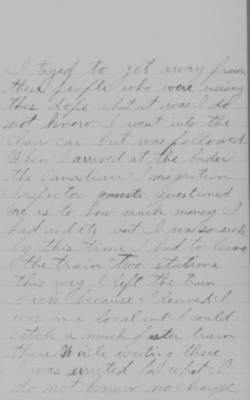 I tryed to get away from
these people who were useing
this dope what it was I do
not know I went into the
chair car but was followed
When I arrived at the border
the Canadian Imigration
Inspector questioned
me is to how much money I
had and its wont I was so sick
by this time I had to leave
the train two stations
this way I left the train
back because I learned I
was on a local and I could
catch a much faster train
there. While waiting there
I was arrested for what I
do not know no charge